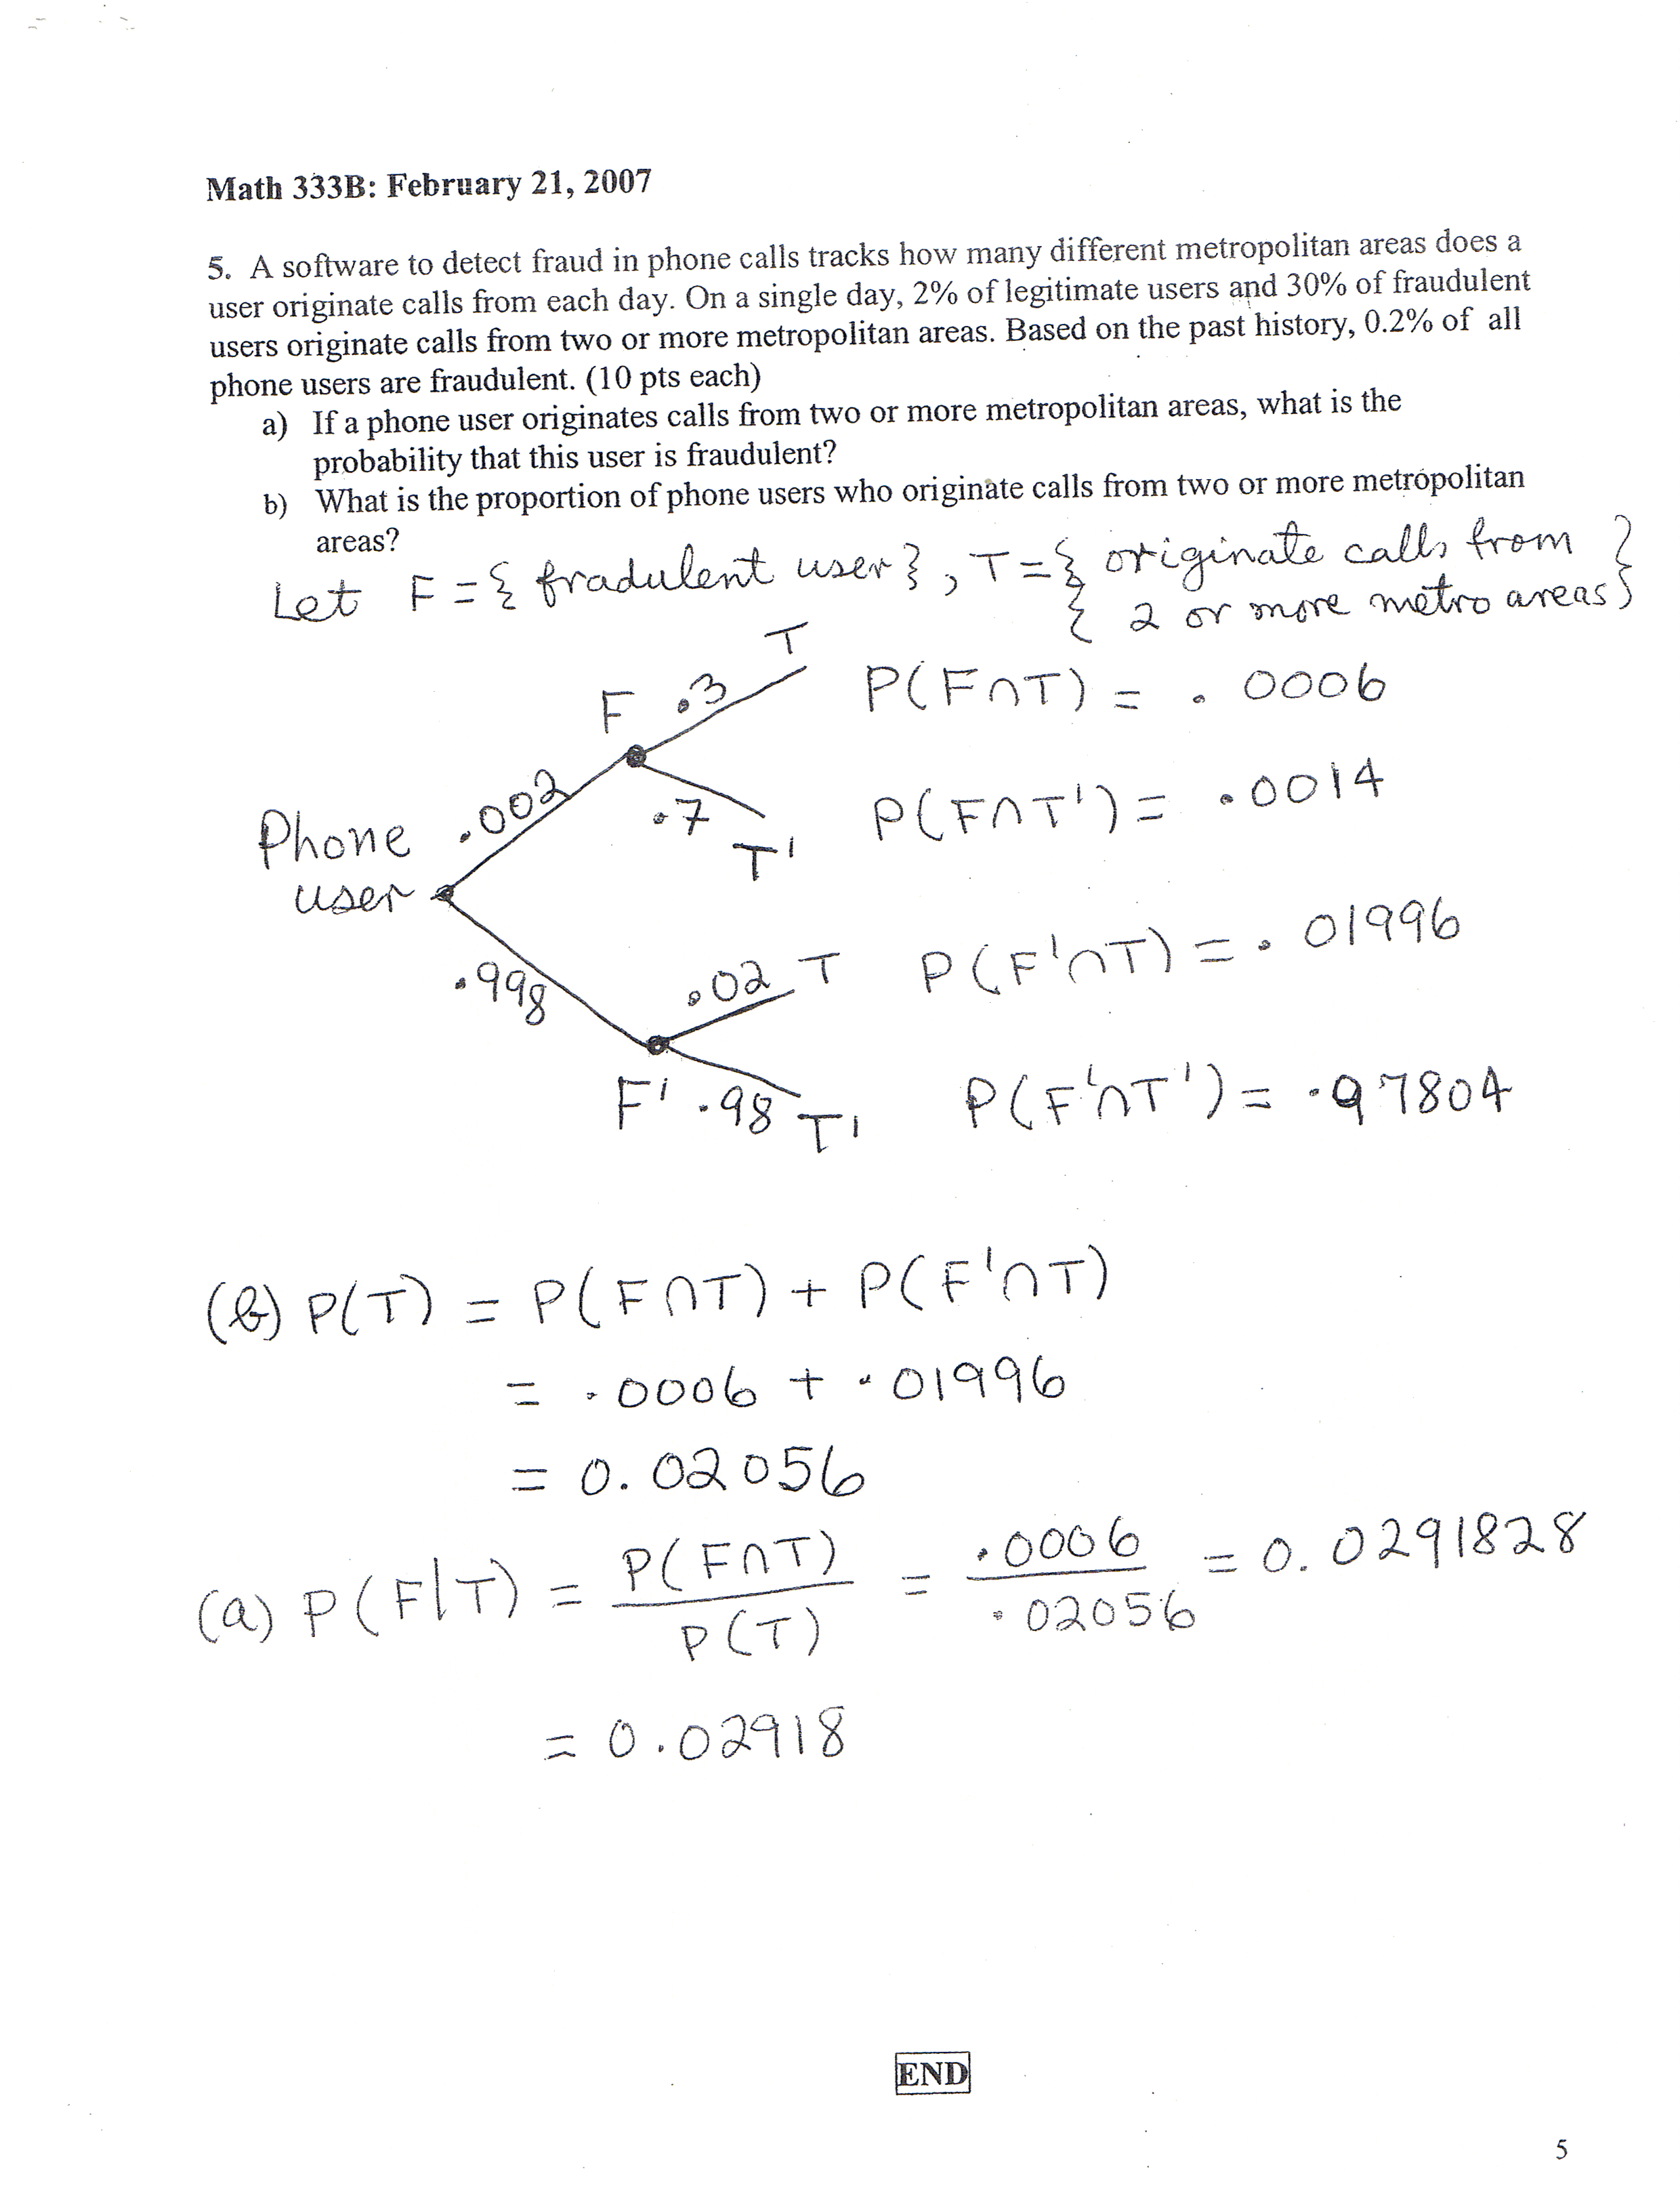 Math 333B: February 21, 2007
5. A software to detect fraud in phone calls tracks how many different metropolitan areas does a
user originate calls from each day. On a single day, 2% of legitimate users and 30% of fraudulent
users originate calls from two or more metropolitan areas. Based on the past history, 0.2% of all
phone users are fraudulent. (10 pts each)
a) If a phone user originates calls from two or more metropolitan areas, what is the
probability that this user is fraudulent?
b) What is the proportion of phone users who originate calls from two or more metropolitan
areas?
Let F = { fradulent user }, T = { originate calls from
2 or more metro areas }
T
F .3 P(F∩T) = .0006
.002
.7 P(F∩T') = .0014
Phone
T'
user
.998 .02 T P(F'∩T) = .01996
F' .98 T' P(F'∩T') = .97804
(b) P(T) = P(F∩T) + P(F'∩T)
= .0006 + .01996
= 0.02056
(a) P(F|T) = P(F∩T) / P(T) = .0006 / .02056 = 0.0291828
= 0.02918
END
5